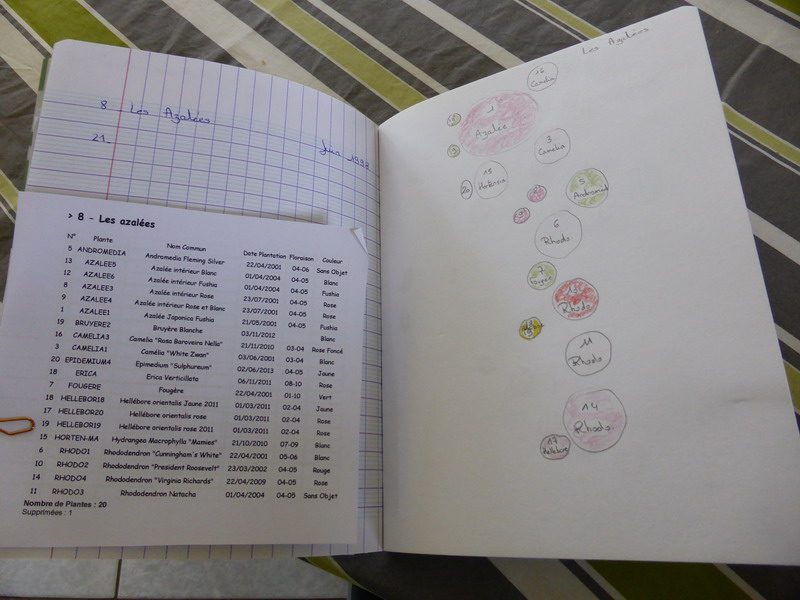 8 - Les Azalées
21
Juin 1998
> 8 - Les azalées
N° Plante Nom Commun Date Plantation Floraison Couleur
5 ANDROMEDIA Andromedia Fleming Silver 22/04/2001 04-06 Sans Objet
13 AZALEE5 Azalée intérieur Blanc 01/04/2004 04-05 Blanc
12 AZALEE6 Azalée intérieur Fushia 01/04/2004 04-05 Fushia
8 AZALEE3 Azalée intérieur Rose 23/07/2001 04-05 Rose
9 AZALEE4 Azalée intérieur Rose et Blanc 23/07/2001 04-05 Rose
1 AZALEE1 Azalée Japonica Fushia 21/05/2001 04-05 Fushia
19 BRUYERE2 Bruyère Blanche 03/11/2012 Blanc
16 CAMELIA3 Camelia "Rosa Baroveira Nella" 21/11/2010 03-04 Rose Foncé
3 CAMELIA1 Camélia "White Zwan" 03/06/2001 03-04 Blanc
20 EPIDEMIUM4 Epimedium "Sulphureum" 02/06/2013 04-05 Jaune
18 ERICA Erica Verticillata 06/11/2011 08-10 Rose
7 FOUGERE Fougère 22/04/2001 01-10 Vert
18 HELLEBOR18 Hellébore orientalis Jaune 2011 01/03/2011 02-04 Jaune
17 HELLEBOR20 Hellébore orientalis rose 01/03/2011 02-04 Rose
19 HELLEBOR19 Hellébore orientalis rose 2011 01/03/2011 02-04 Rose
15 HORTEN-MA Hydrangea Macrophylla "Mamies" 21/10/2010 07-09 Blanc
6 RHODO1 Rhodododendron "Cunningham's White" 22/04/2001 05-06 Blanc
10 RHODO2 Rhododendron "President Roosevelt" 23/03/2002 04-05 Rouge
14 RHODO4 Rhododendron "Virginia Richards" 22/04/2009 04-05 Rose
11 RHODO3 Rhododendron Natacha 01/04/2004 04-05 Sans Objet
Nombre de Plantes : 20
Supprimées : 1
Les Azalées
16
Camelia
1
Azalée
3
Camelia
15
Hortensia
5
Andromed
6
Rhodo
7
Fougere
Rhodo
11
Rhodo
14
Rhodo
17
Hellebore